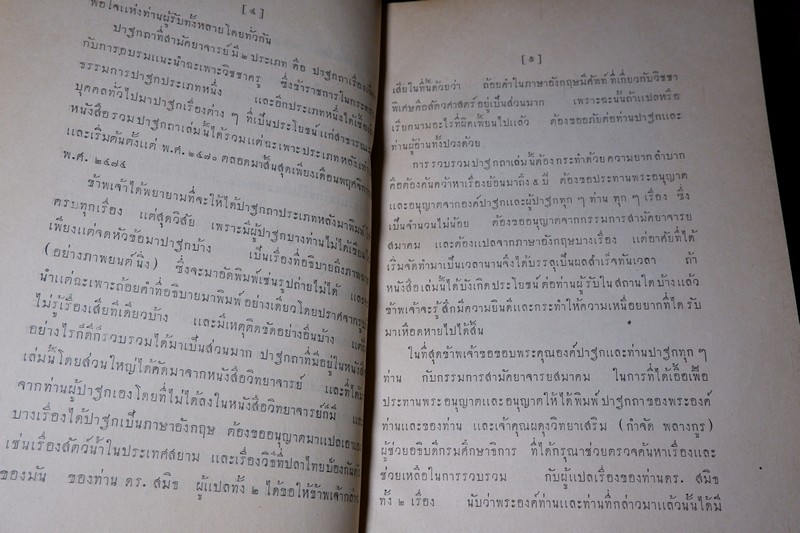 [ ๔ ]
พอใจแห่งท่านผู้รับทั้งหลายโดยทั่วกัน
ปาฐกถาที่สามัคยาจารย์มี ๒ ประเภท คือ ปาฐกถาเรื่อง
กับการอบรมแนะนำฉะเพาะวิชชาครู ซึ่งข้าราชการในกระทรวง
ธรรมการปาฐกประเภทหนึ่ง และอีกประเภทหนึ่งได้เชื้อ
บุคคลทั่วไปมาปาฐกเรื่องต่าง ๆ ที่เป็นประโยชน์แก่สาธารณะ
หนังสือรวมปาฐกถาเล่มนี้ได้รวมแต่ฉะเพาะประเภทหลัง
และเริ่มต้นตั้งแต่ พ.ศ. ๒๔๗๐ ตลอดมาสิ้นสุดเพียงเดือนพฤศจิกา
พ.ศ. ๒๔๗๔
ข้าพเจ้าได้พยายามที่จะให้ได้ปาฐกถาประเภทหลังมาพิมพ์
ครบทุกเรื่อง แต่สุดวิสัย เพราะมีผู้ปาฐกบางท่านไม่ได้เขียน
เพียงแต่จดหัวข้อมาปาฐกบ้าง เป็นเรื่องที่อธิบายถึงภาพ
(อย่างภาพยนต์นิ่ง) ซึ่งจะมาอัดพิมพ์เช่นรูปถ่ายไม่ได้
นำแต่ฉะเพาะถ้อยคำที่อธิบายมาพิมพ์อย่างเดียวโดยปราศจากรูป
ไม่รู้เรื่องเสียทีเดียวบ้าง และมีเหตุติดขัดอย่างอื่นบ้าง
อย่างไรก็ดีก็รวบรวมได้มาเป็นส่วนมาก ปาฐกถาที่มีอยู่ในหนังสือ
เล่มนี้โดยส่วนใหญ่ได้คัดมาจากหนังสือวิทยาจารย์ และที่ได้
จากท่านผู้ปาฐกเองโดยที่ไม่ได้ลงในหนังสือวิทยาจารย์ก็มี
บางเรื่องได้ปาฐกเป็นภาษาอังกฤษ ต้องขออนุญาตมาแปลเอา
เช่นเรื่องสัตว์น้ำในประเทศสยาม และเรื่องวิธีที่ปลาไทยป้องกัน
ของมัน ของท่าน ดร. สมิธ ผู้แปลทั้ง ๒ ได้ขอให้ข้าพเจ้ากล่าว
[ ๕ ]
เสียในที่นี้ด้วยว่า ถ้อยคำในภาษาอังกฤษมีศัพท์ที่เกี่ยวกับวิชชา
พิเศษคือสัตวศาสตร์อยู่เป็นส่วนมาก เพราะฉะนั้นถ้าแปลหรือ
เรียกนามอะไรที่ผิดเพี้ยนไปแล้ว ต้องขออภัยต่อท่านปาฐกและ
ท่านผู้อ่านทั้งปวงด้วย
การรวบรวมปาฐกถาเล่มนี้ต้องกระทำด้วยความยากลำบาก
คือต้องค้นคว้าหาเรื่องย้อนมาถึง ๕ ปี ต้องขอประทานพระอนุญาต
และอนุญาตจากองค์ปาฐกและผู้ปาฐกทุก ๆ ท่าน ทุก ๆ เรื่อง ซึ่ง
เป็นจำนวนไม่น้อย ต้องขออนุญาตจากกรรมการสามัคยาจารย
สมาคม และต้องแปลจากภาษาอังกฤษบางเรื่อง แต่อาศัยที่ได้
เริ่มจัดทำมาเป็นเวลานานจึงได้บรรลุเป็นผลสำเร็จทันเวลา ถ้า
หนังสือเล่มนี้ได้บังเกิดประโยชน์ต่อท่านผู้รับในสถานใดบ้างแล้ว
ข้าพเจ้าจะรู้สึกมีความยินดีและกระทำให้ความเหนื่อยยากที่ได้รับ
มาเหือดหายไปได้สิ้น
ในที่สุดข้าพเจ้าขอขอบพระคุณองค์ปาฐกและท่านปาฐกทุก ๆ
ท่าน กับกรรมการสามัคยาจารยสมาคม ในการที่ได้เอื้อเฟื้อ
ประทานพระอนุญาตและอนุญาตให้ได้พิมพ์ปาฐกถาของพระองค์
ท่านและของท่าน และเจ้าคุณผดุงวิทยาเสริม (กำจัด พลางกูร)
ผู้ช่วยอธิบดีกรมศึกษาธิการ ที่ได้กรุณาช่วยตรวจค้นหาเรื่องและ
ช่วยเหลือในการรวบรวม กับผู้แปลเรื่องของท่านดร. สมิธ
ทั้ง ๒ เรื่อง นับว่าพระองค์ท่านและท่านที่กล่าวมาแล้วนั้นได้มี